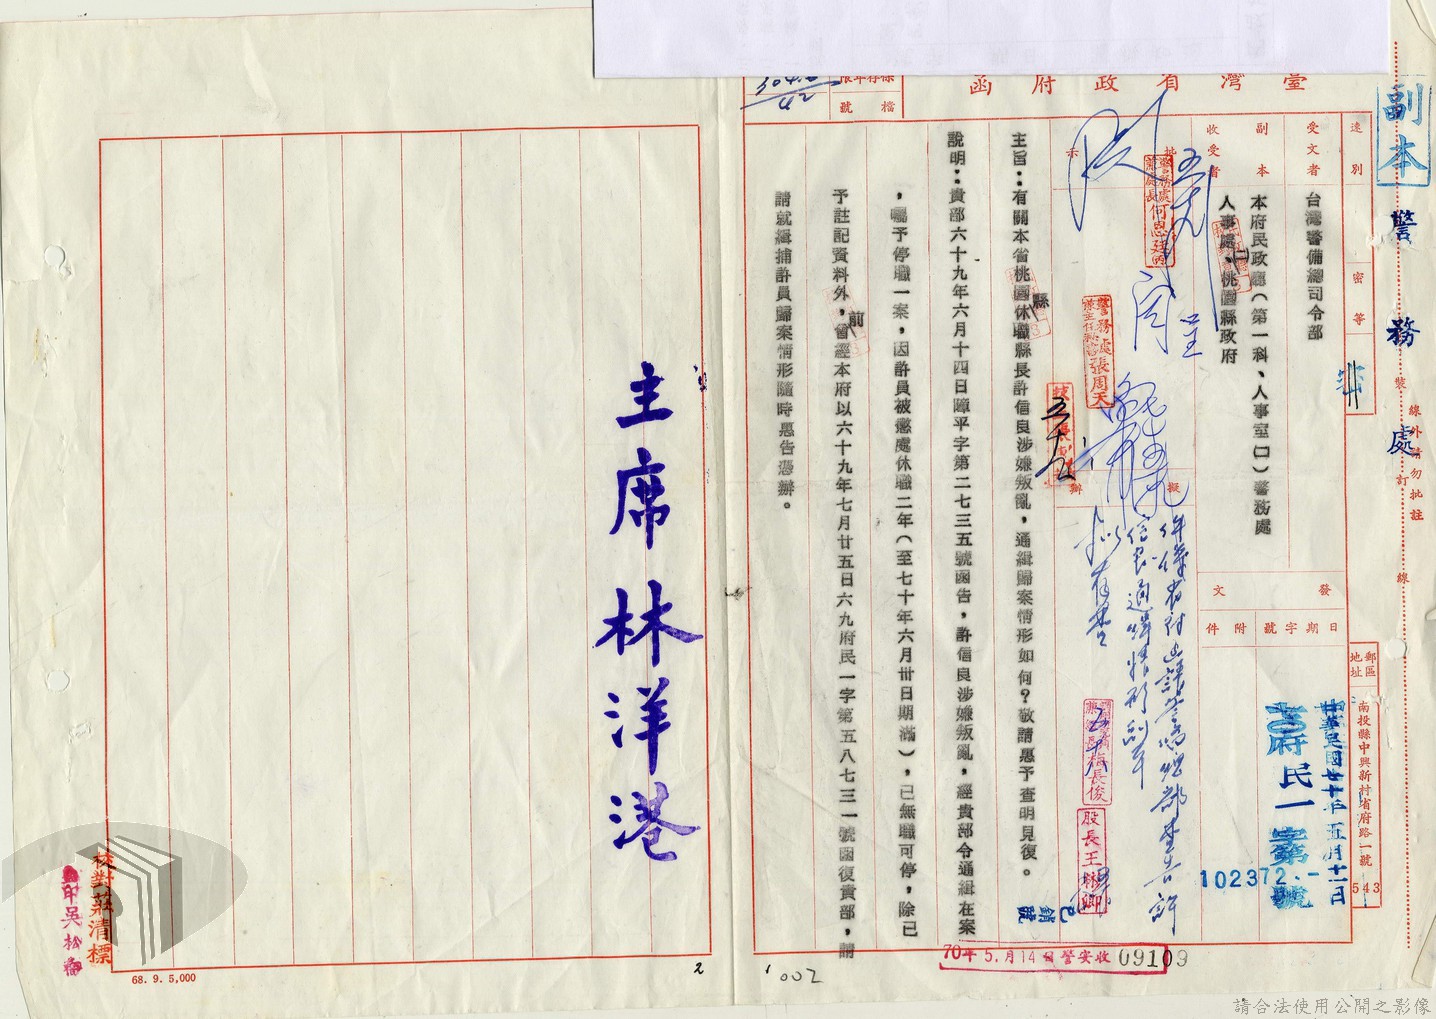 臺灣省政府函
副本
警務處
檔號
速別
密等
受文者
台灣警備總司令部
副本收受者
本府民政廳（第一科、人事室㈡）警務處
人事處㈡、桃園縣政府
批示
擬辦
發文
日期字號附件
中華民國七十年五月十一日
七〇府民一字第
102372號
郵區
地址
543
南投縣中興新村省府路一號
裝訂線
線外請勿批註
主旨：有關本省桃園縣休職縣長許信良涉嫌叛亂，通緝歸案情形如何？敬請惠予查明見復。
說明：貴部六十九年六月十四日障平字第二七三五號函告，許信良涉嫌叛亂，經貴部令通緝在案
，囑予停職一案，因許員被懲處休職二年（至七十年六月卅日期滿），已無職可停，除已
予註記資料外，前曾經本府以六十九年七月廿五日六九府民一字第五八七三一號函復貴部，請
請就緝捕許員歸案情形隨時惠告憑辦。
主席林洋港
警務處兼處長何恩廷
警務處張周天
股長王彬卿
70年5.月14日警安收 09109
校對莊清標
68. 9. 5,000
2
1
002
請合法使用公開之影像